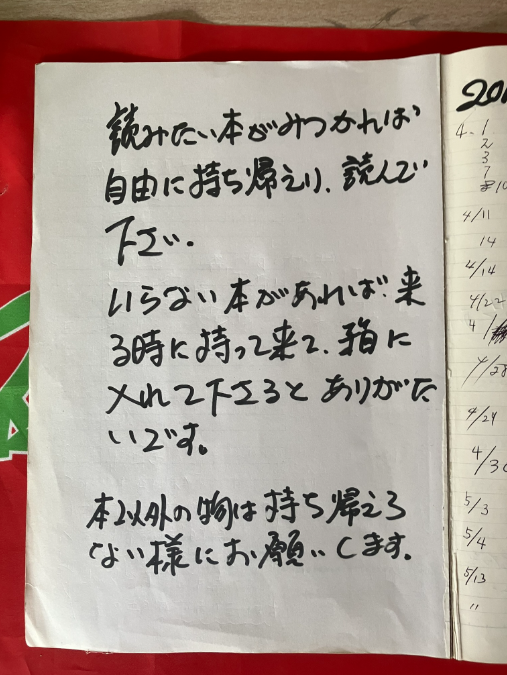 読みたい本がみつかれば
自由に持ち帰えり、読んで
下さい.
いらない本があれば来
る時に持って来て、箱に
入れて下さるとありがた
いです。
本以外の物は持ち帰えら
ない様にお願いします.
201
4.1
2
3
7
4/11
14
4/14
4/22
4/28
4/24
4/30
5/3
5/4
5/13
〃